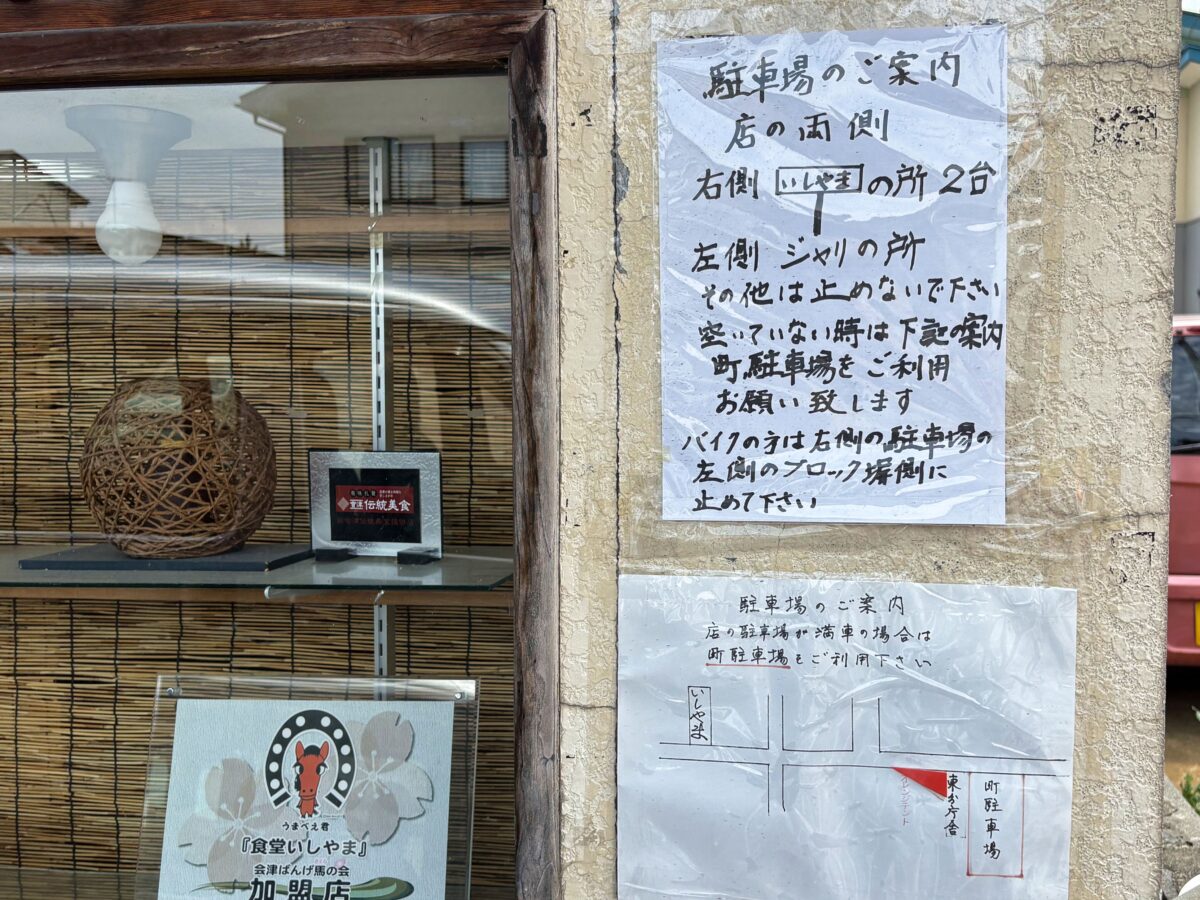 駐車場のご案内
店の両側
右側 いしやま の所 2台
左側 ジャリの所
その他は止めないで下さい
空いていない時は下記の案内
町駐車場をご利用
お願い致します
バイクの方は右側の駐車場の
左側のブロック塀側に
止めて下さい
駐車場のご案内
店の駐車場が満車の場合は
町駐車場をご利用下さい
いしやま
東分庁舎
町駐車場
伝統美食
うまべえ君
『食堂いしやま』
会津ばんげ馬の会
加盟店